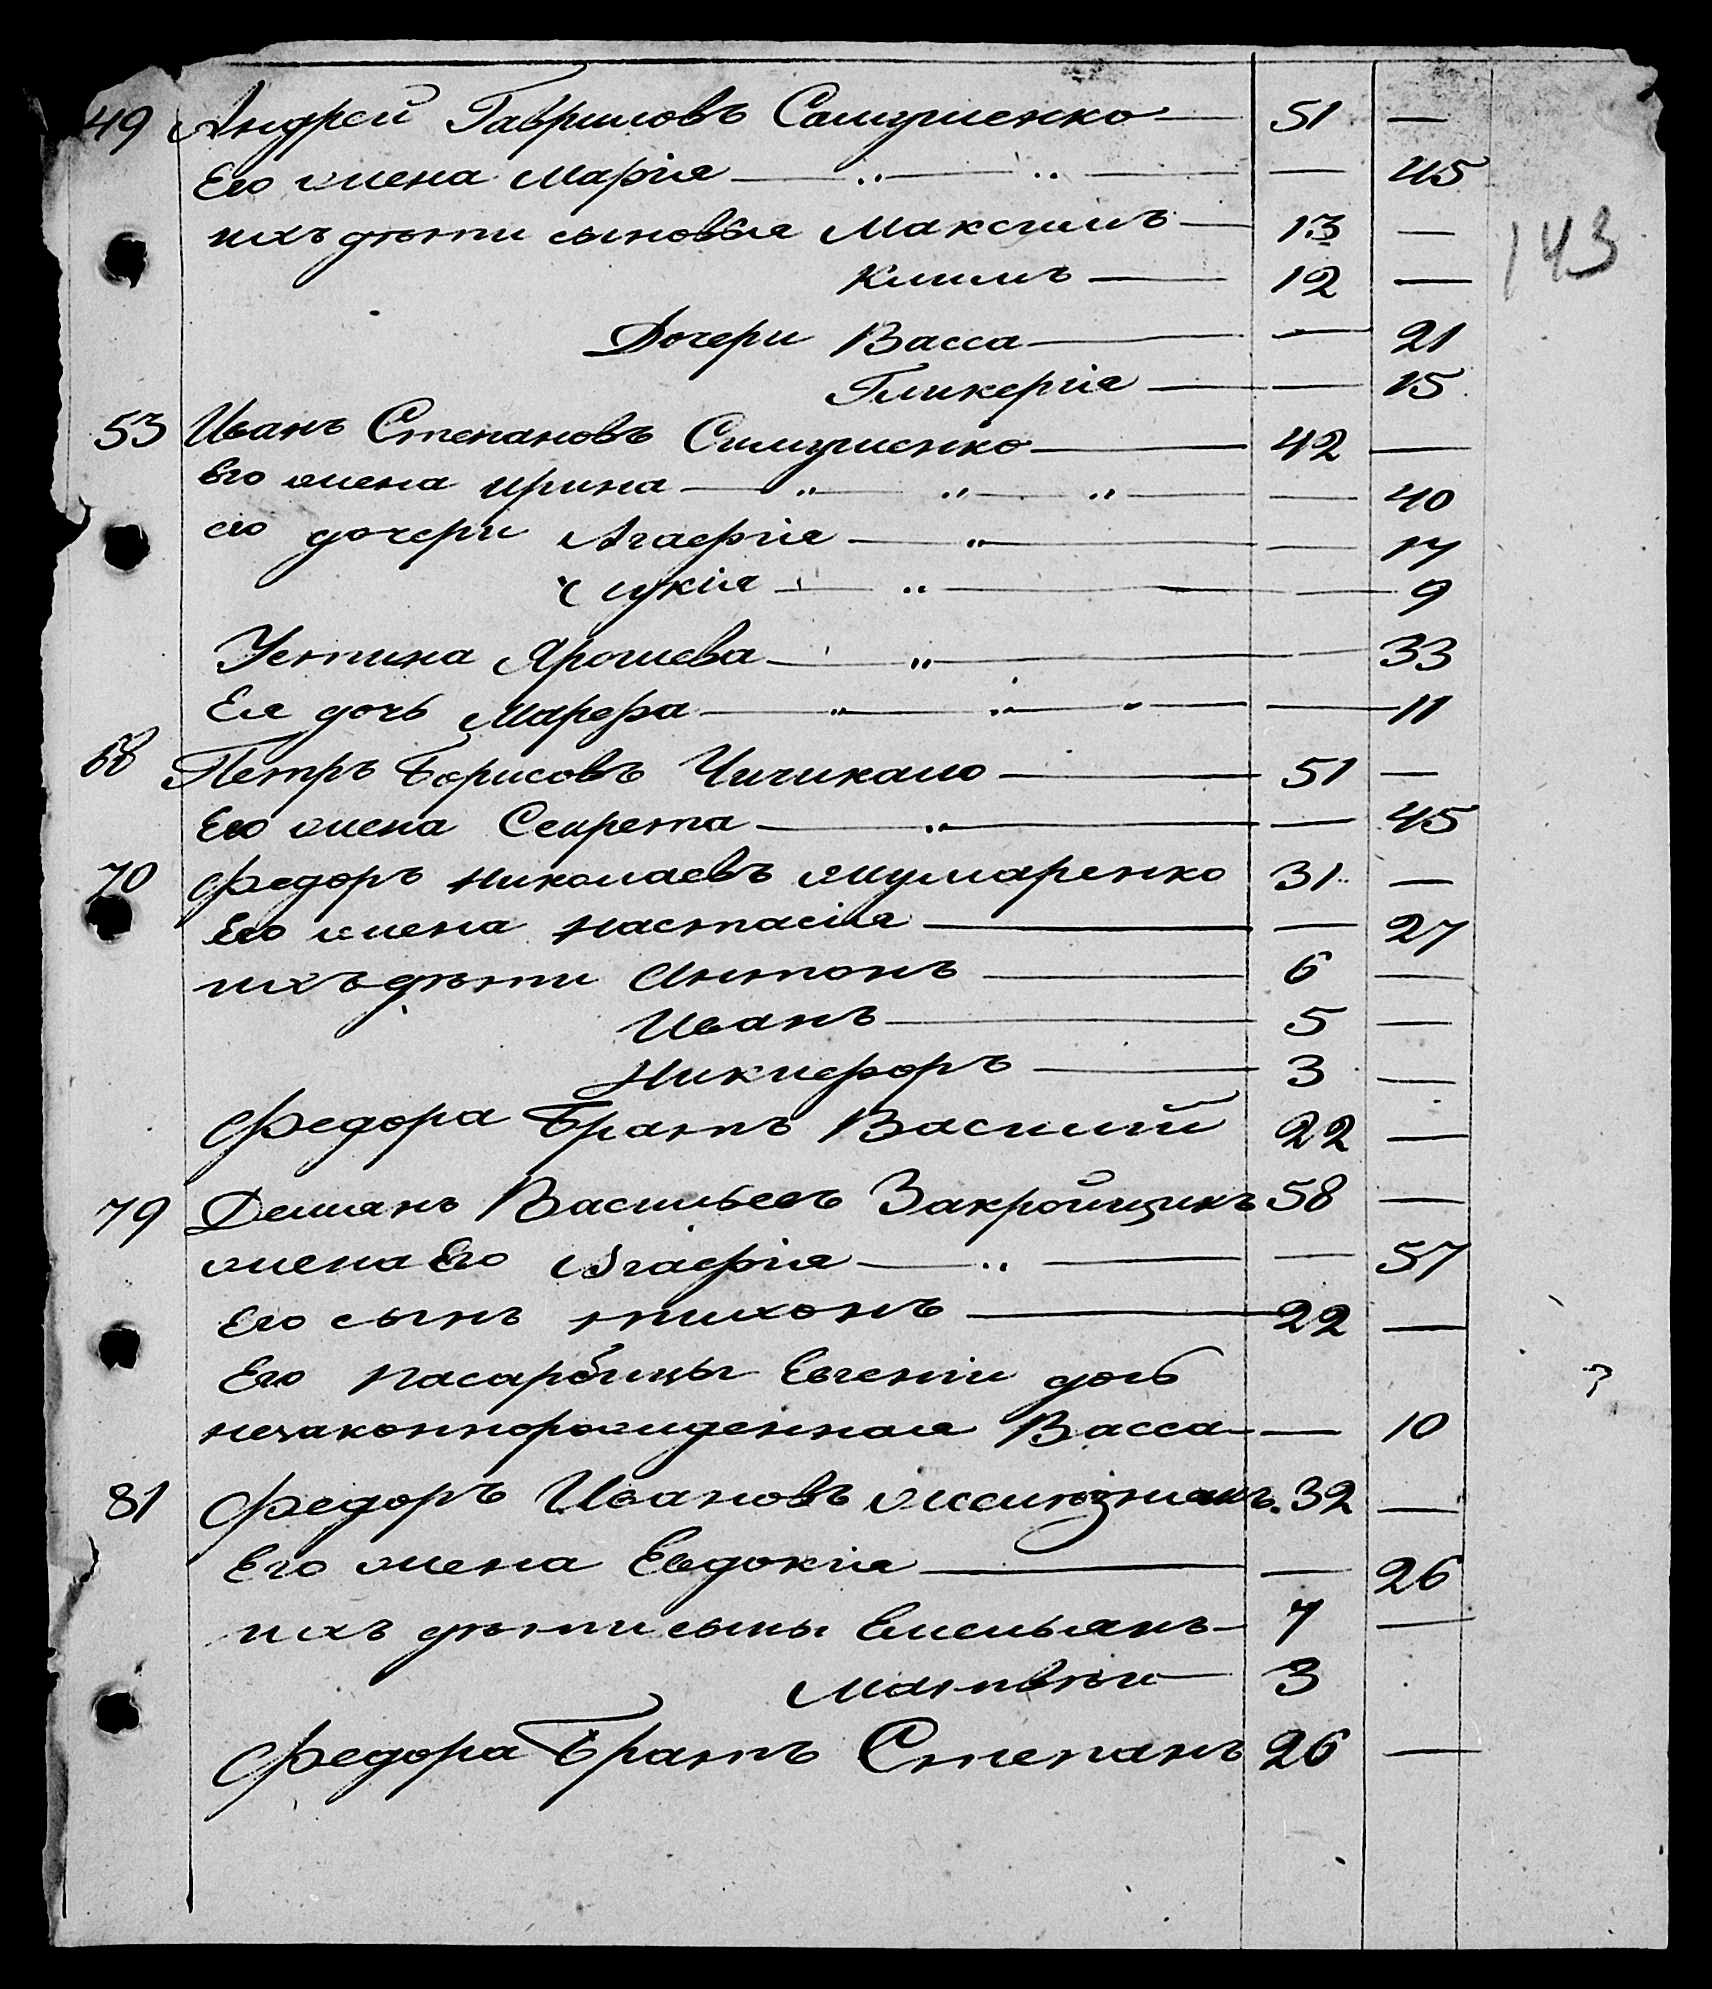 49 Андрей Гавриловъ Самуиленко — 51 —
Его жена Марія — „ — „ — — 45
ихъ дѣти сыновья Максимъ — 13 —
143
Климъ — 12 —
Дочери Васса — — 21
Гликерія — — 15
53 Иванъ Степановъ Самуиленко — 42 —
Его жена Ирина — „ — „ — „ — — 40
его дочери Агафія — „ — — 17
Лукія — „ — — 9
Устина Ярошева — „ — — 33
Ея дочь Марфа — „ — „ — „ — — 11
68 Петръ Борисовъ Чичикало — 51 —
Его жена Секрета — „ — — 45
70 Федоръ Николаевъ 31 —
Его жена Настасія — — 27
ихъ дѣти Антонъ — 6 —
Иванъ — 5 —
Никифоръ — 3 —
Федора Братъ Василій 22 —
79 Демianъ Васильевъ Закройщикъ 58 —
жена Его Агафія — „ — — 57
Его сынъ Тихонъ — 22 —
Его Евгеніи дочь
незаконнорожденная Васса — — 10
81 Федоръ Ивановъ 32 —
Его жена Евдокія — — 26
ихъ дѣти сыны Емельянъ — 7 —
Матвѣй — 3
Федора Братъ Степанъ 26 —